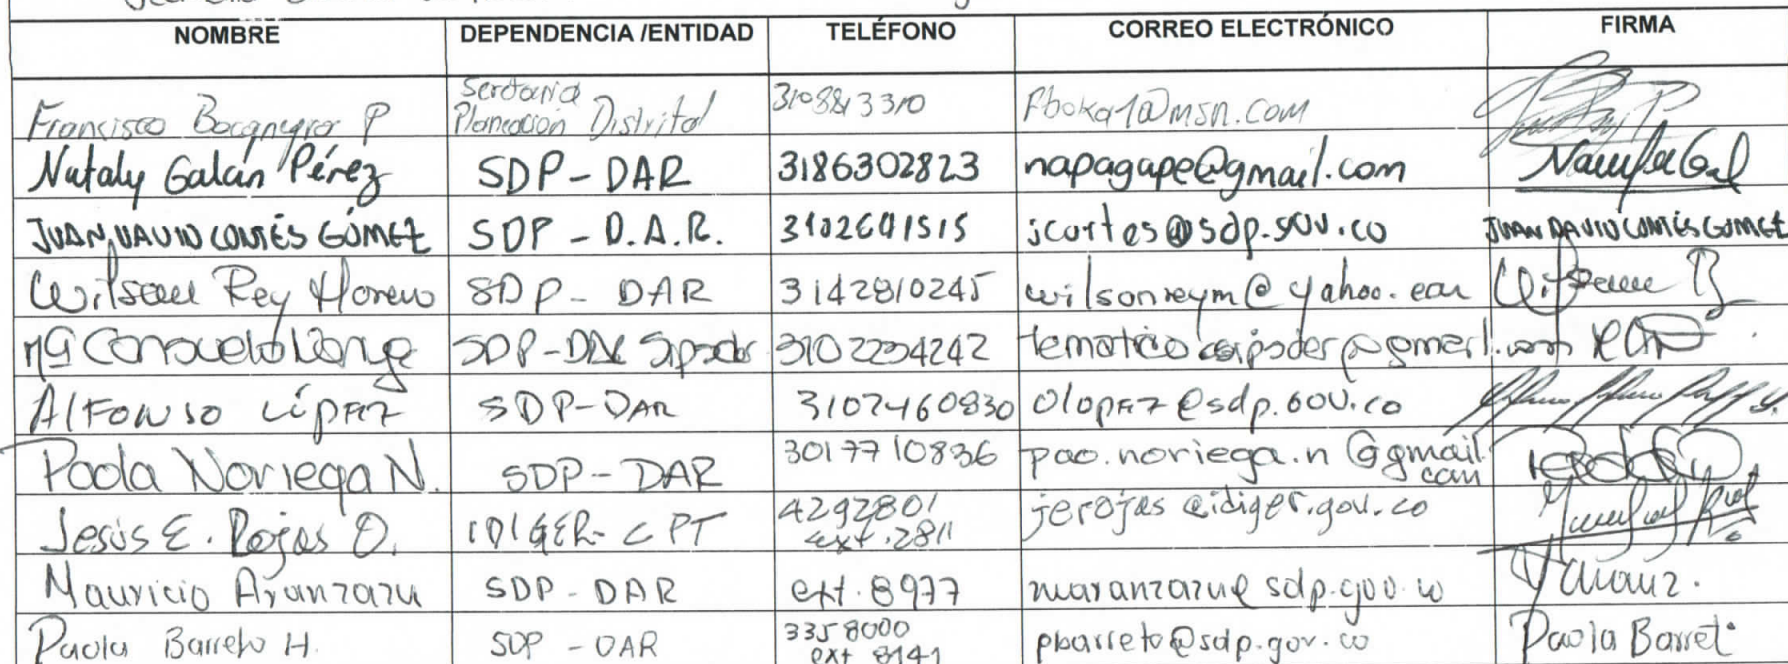 NOMBRE DEPENDENCIA /ENTIDAD TELÉFONO CORREO ELECTRÓNICO FIRMA
Francisco Bocanegra P Planeación Distrital 3108813310 Fboka1@msn.com
Nataly Galán Pérez SDP-DAR 3186302823 napagape@gmail.com
JUAN DAVID CORTÉS GÓMEZ SDP - D.A.R. 3102641515 jcortes@sdp.gov.co JUAN DAVID CORTÉS GÓMEZ
Wilson Rey Moreno SDP - DAR 3142810245 wilsonreym@yahoo.com
Mª Consuelo SDP-DAR 3102234242
Alfonso López SDP-DAR 3107460830 alopez@sdp.gov.co
Paola Noriega N. SDP-DAR 3017710836 pao.noriega.n@gmail.com
Jesús E. Rojas O. IDIGER-CPT 4292801 ext.2811 jerojas@idiger.gov.co
Mauricio Aranzazu SDP-DAR ext.8977 maranzazu@sdp.gov.co
Paola Barreto H. SDP-DAR 3358000 ext 8141 pbarreto@sdp.gov.co Paola Barret